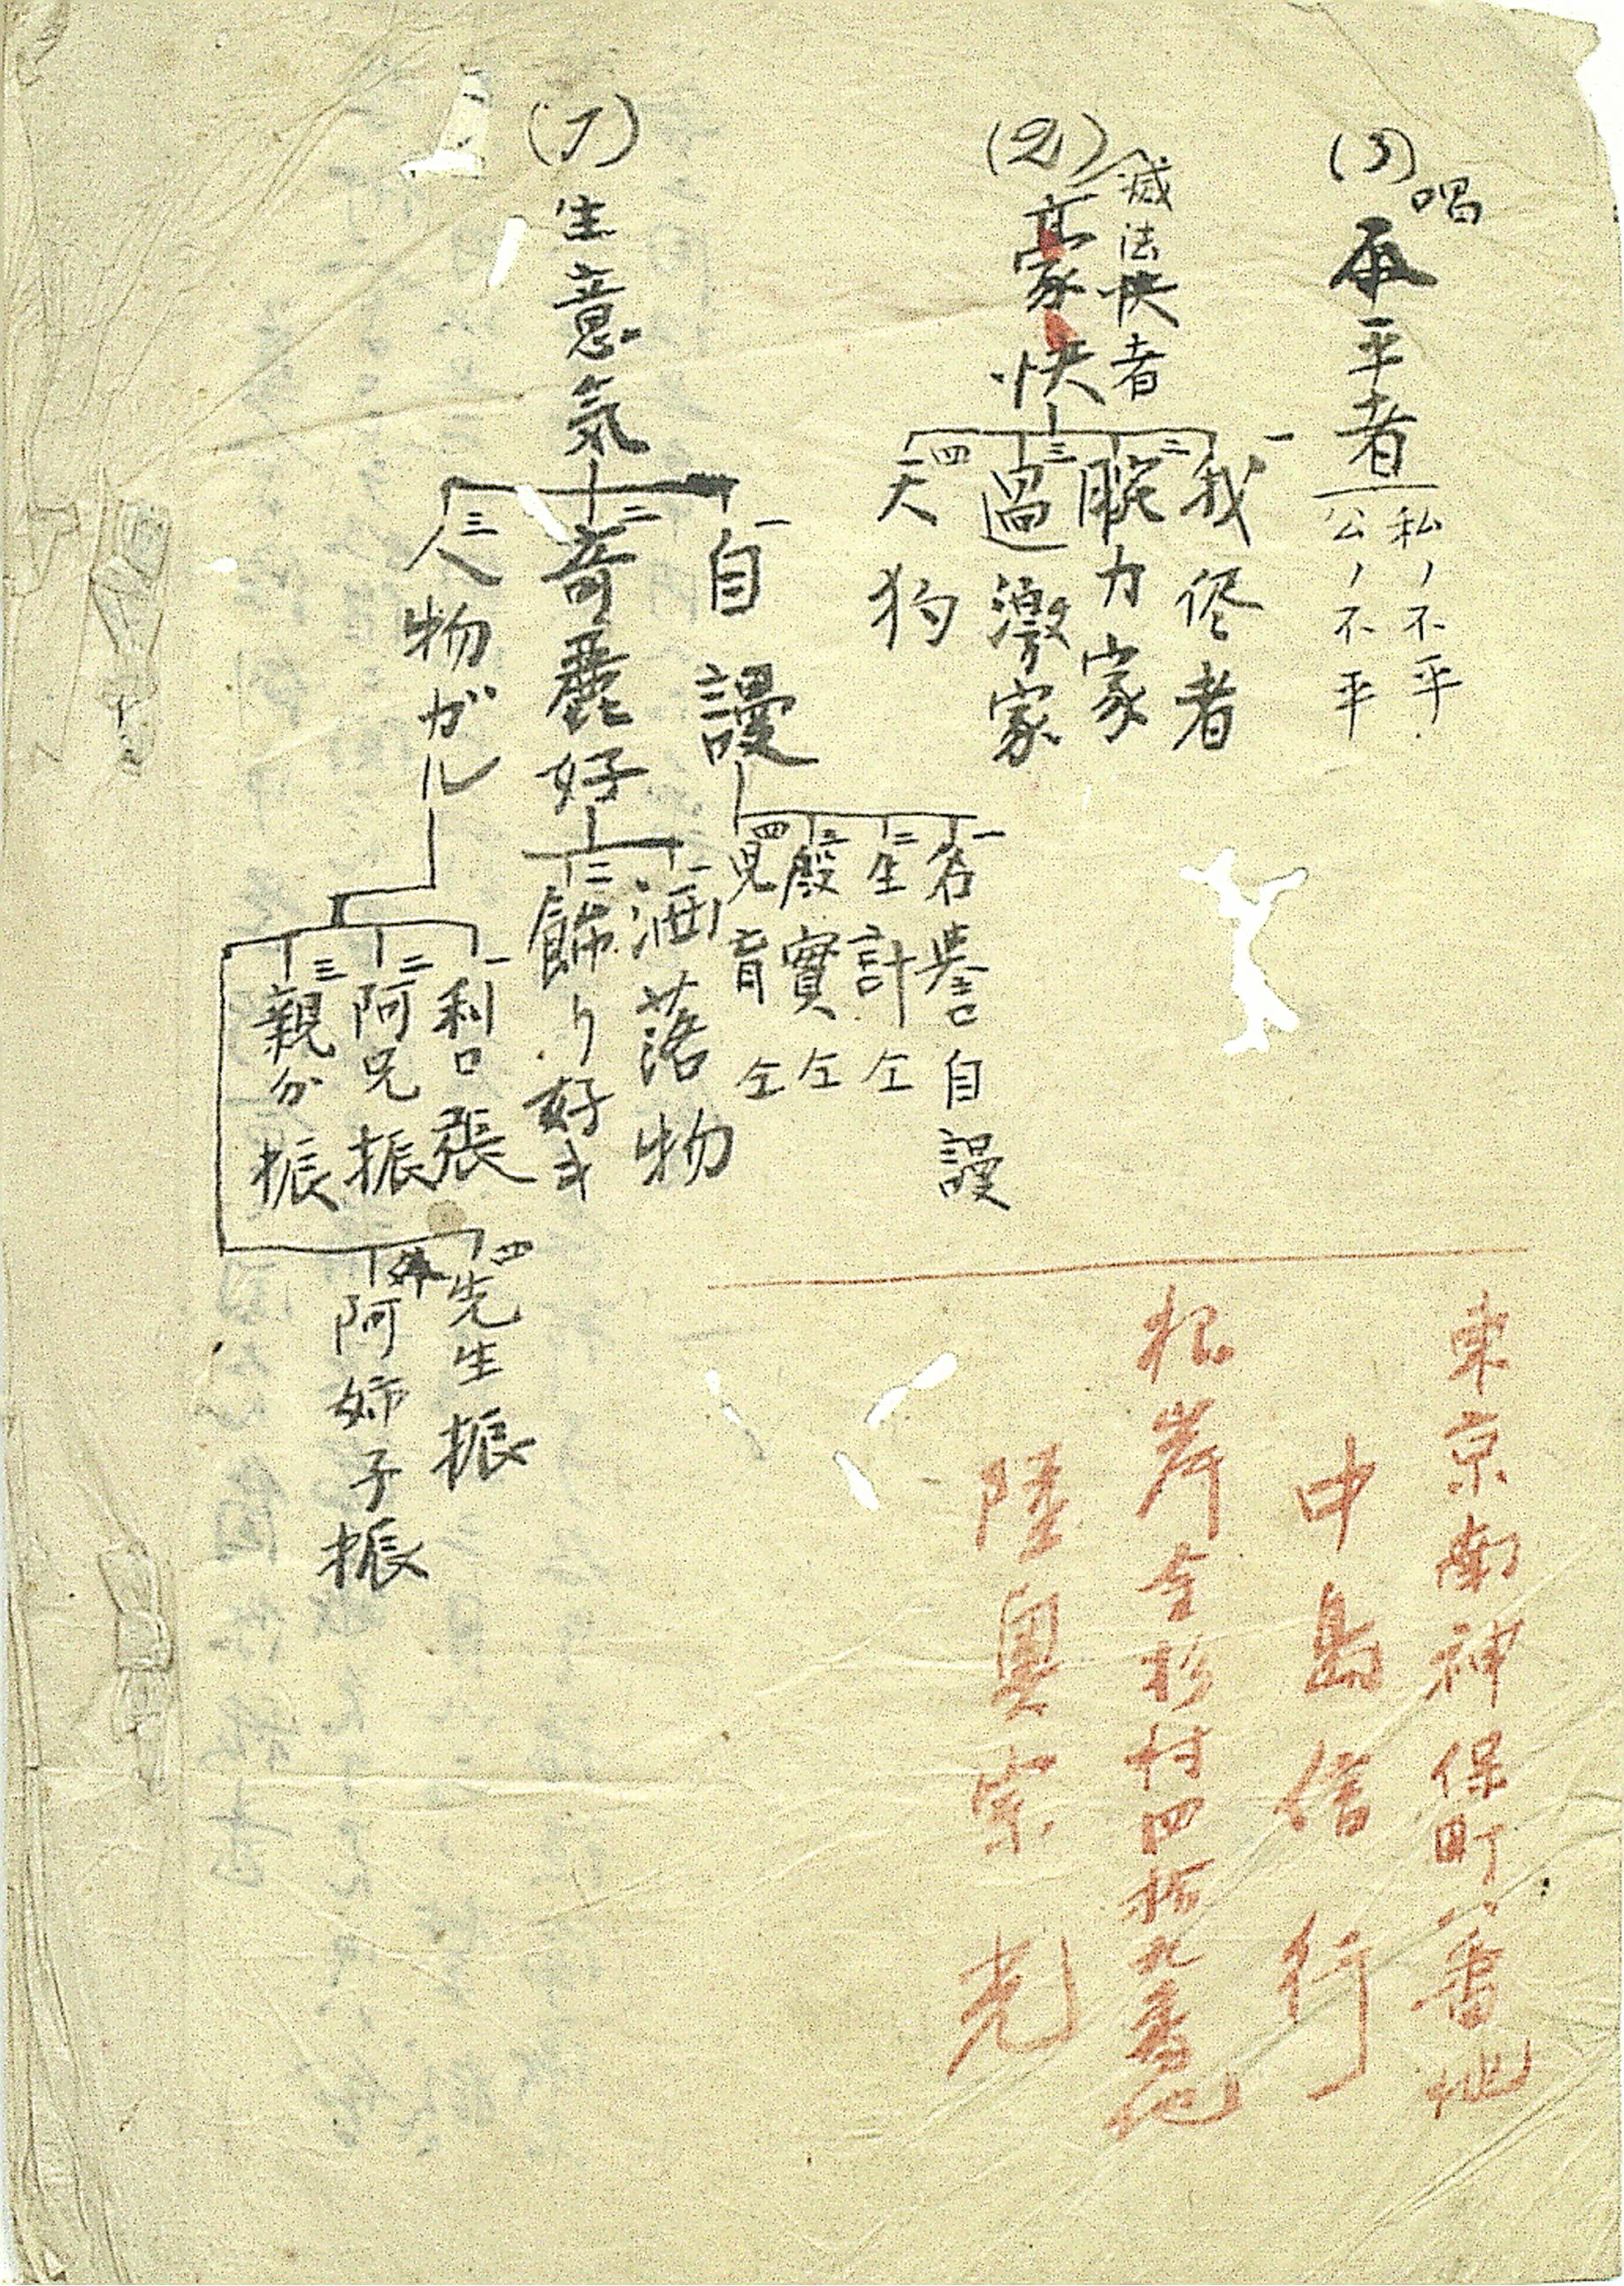 (3)
唱
平者
私ノ不平
公ノ不平
(2)
滅法快者
豪快
一
我侭者
二
腕力家
三
過激家
四
天狗
(1)
生意気
一
自謾
一
名誉自謾
二
生計仝
三
殷實仝
四
児育仝
二
奇麗好
一
洒落物
二
飾り好キ
三
人物ガル
一
利口張
二
阿兄振
三
親分振
四
先生振
阿姉子振
東京南神保町八番地
中島信行
根岸金杉村四拾九番地
陸奥宗光